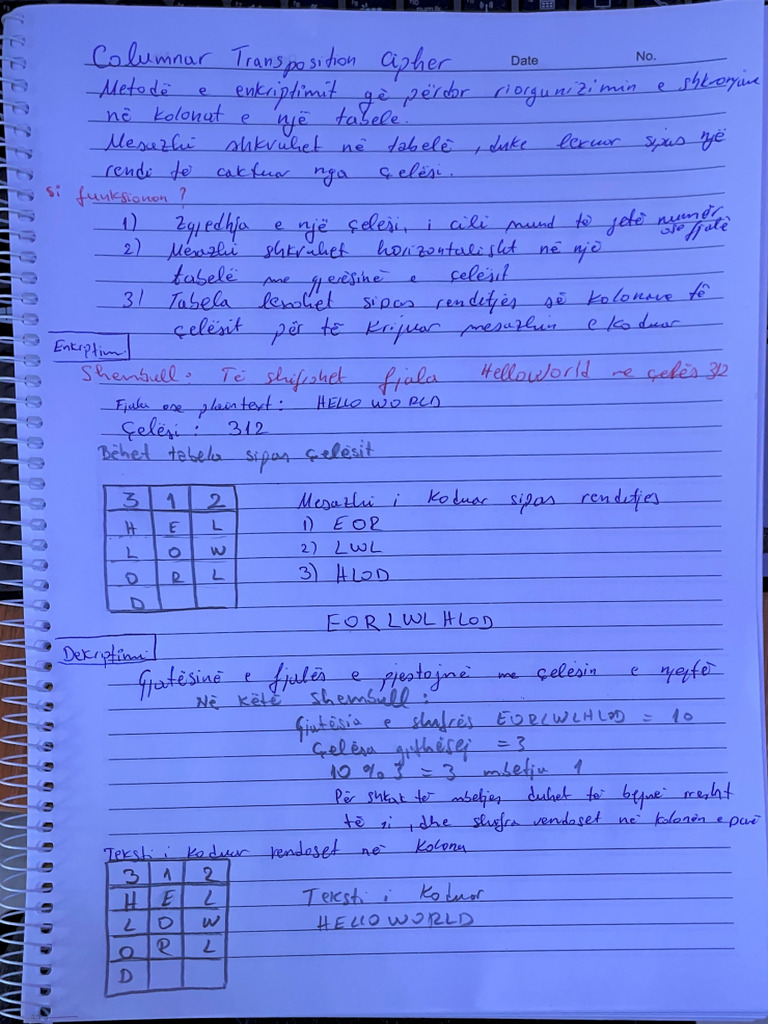 Columnar Transposition Cipher Date No.
Metodë e enkriptimit që përdor riorgunizimin e shkronjave
në kolonat e një tabele.
Mesazhi shkruhet në tabelë, duke lexuar sipas një
rendi të caktuar nga çelësi.
si funksionon?
1) Zgjedhja e një çelësi, i cili mund të jetë numër
ose fjalë
2) Mesazhi shkruhet horizontalisht në një
tabelë me gjerësinë e çelësit
3) Tabela lexohet sipas renditjes së kolonave të
çelësit për të krijuar mesazhin e koduar
Enkriptimi
Shembull: Të shifrohet fjala HelloWorld me çelës 312
Fjala ose plaintext: HELLO WORLD
Çelësi: 312
Bëhet tabela sipas çelësit
3 1 2
H E L
L O W
O R L
D
Mesazhi i koduar sipas renditjes
1) EOR
2) LWL
3) HLOD
EORLWLHLOD
Dekriptimi
Gjatësinë e fjalës e pjestojmë me çelësin e njejtë
Në këtë shembull:
Gjatësia e shifrës EORLWLHLOD = 10
Çelësa gjithësej = 3
10 % 3 = 3 mbetja 1
Për shkak të mbetjes duhet të bëjmë rresht
të ri, dhe shifra vendoset në kolonën e parë
Teksti i koduar vendoset në kolona
3 1 2
H E L
L O W
O R L
D
Teksti i koduar
HELLOWORLD